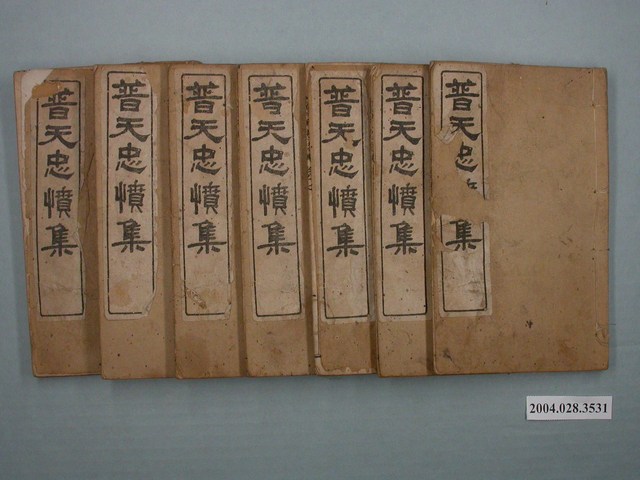 普天忠憤集
普天忠憤集
普天忠憤集
普天忠憤集
普天忠憤集
普天忠憤集
普天忠集
2004.028.3531